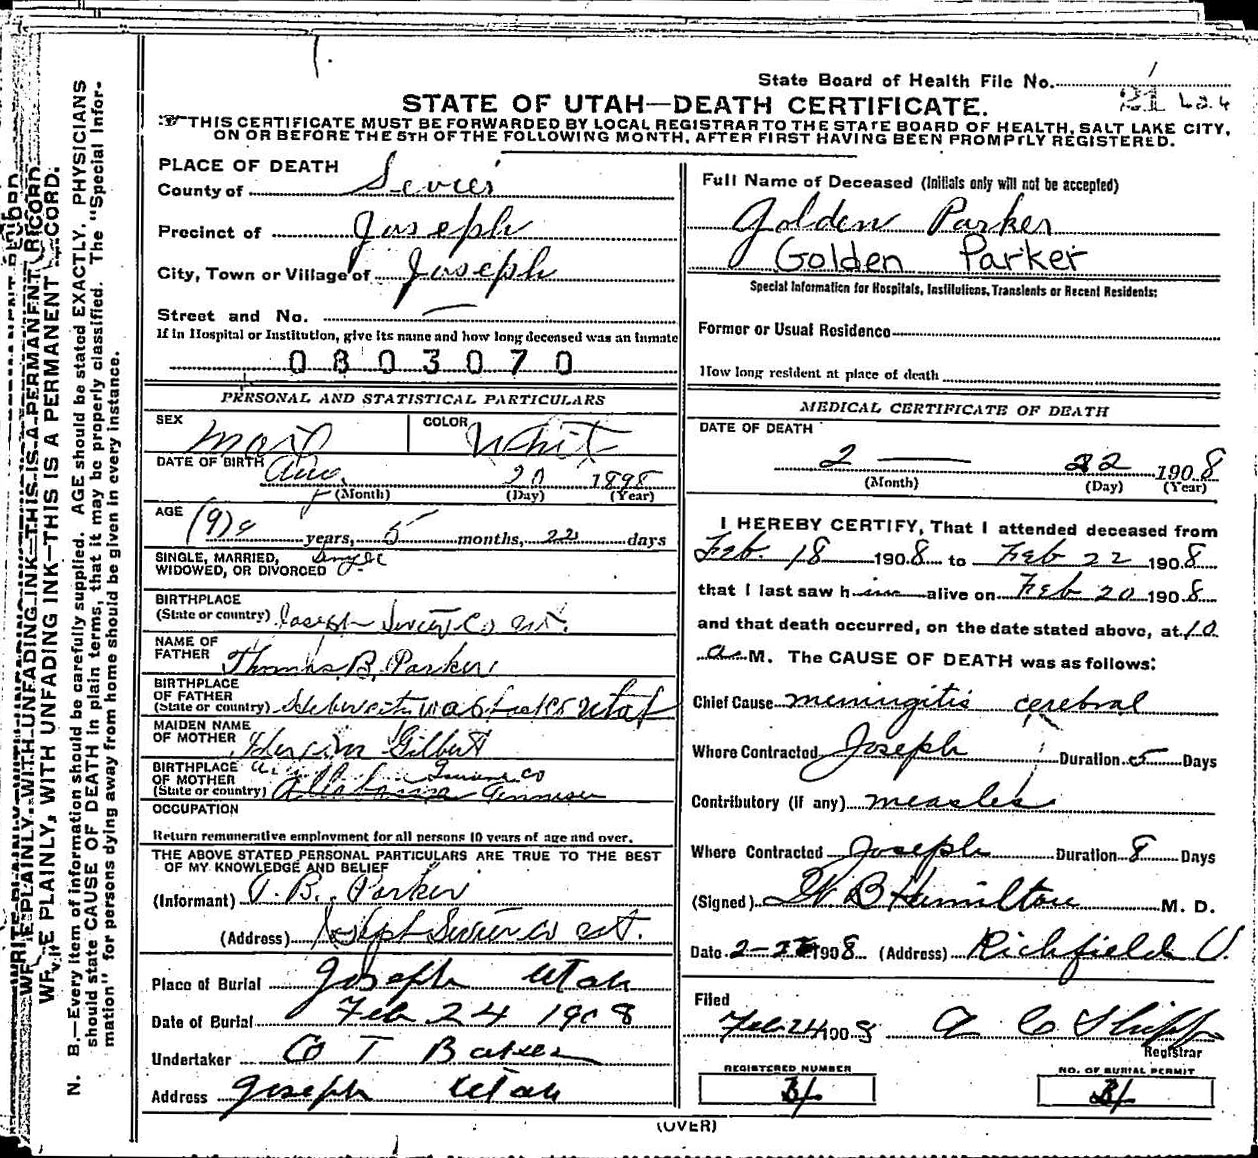 State Board of Health File No.
21
STATE OF UTAH—DEATH CERTIFICATE.
THIS CERTIFICATE MUST BE FORWARDED BY LOCAL REGISTRAR TO THE STATE BOARD OF HEALTH, SALT LAKE CITY,
ON OR BEFORE THE 5TH OF THE FOLLOWING MONTH, AFTER FIRST HAVING BEEN PROMPTLY REGISTERED.
PLACE OF DEATH
County of Sevier
Precinct of Joseph
City, Town or Village of Joseph
Street and No. —
If in Hospital or Institution, give its name and how long deceased was an inmate
0803070
PERSONAL AND STATISTICAL PARTICULARS
SEX
COLOR
White
DATE OF BIRTH
Aug. 20 1898
(Month) (Day) (Year)
AGE
(9) 9 years, 5 months, 22 days
SINGLE, MARRIED,
WIDOWED, OR DIVORCED Single
BIRTHPLACE
(State or country) Joseph Sevier Co Ut.
NAME OF
FATHER Thomas B. Parker
BIRTHPLACE
OF FATHER
(State or country) Utah
MAIDEN NAME
OF MOTHER Gilbert
BIRTHPLACE
OF MOTHER
(State or country) Alabama Tennessee
OCCUPATION
Return remunerative employment for all persons 10 years of age and over.
THE ABOVE STATED PERSONAL PARTICULARS ARE TRUE TO THE BEST
OF MY KNOWLEDGE AND BELIEF
(Informant) T. B. Parker
(Address) Joseph Sevier Co Ut.
Place of Burial Joseph Utah
Date of Burial Feb 24 1908
Undertaker O T
Address Joseph Utah
Full Name of Deceased (Initials only will not be accepted)
Golden Parker
Golden Parker
Special Information for Hospitals, Institutions, Transients or Recent Residents:
Former or Usual Residence
How long resident at place of death
MEDICAL CERTIFICATE OF DEATH
DATE OF DEATH
2 — 22 1908
(Month) (Day) (Year)
I HEREBY CERTIFY, That I attended deceased from
Feb. 18 1908 to Feb 22 1908
that I last saw him alive on Feb 20 1908
and that death occurred, on the date stated above, at 10
a M. The CAUSE OF DEATH was as follows:
Chief Cause meningitis cerebral
Where Contracted Joseph Duration 5 Days
Contributory (if any) measles
Where Contracted Joseph Duration 8 Days
(Signed) W B Hamilton M. D.
Date 2- 1908 (Address) Richfield U.
Filed
Feb 24 1908
Registrar
REGISTERED NUMBER
NO. OF BURIAL PERMIT
(OVER)
WRITE PLAINLY, WITH UNFADING INK—THIS IS A PERMANENT RECORD.
N. B.—Every item of information should be carefully supplied. AGE should be stated EXACTLY. PHYSICIANS
should state CAUSE OF DEATH in plain terms, that it may be properly classified. The "Special Infor-
mation" for persons dying away from home should be given in every instance.